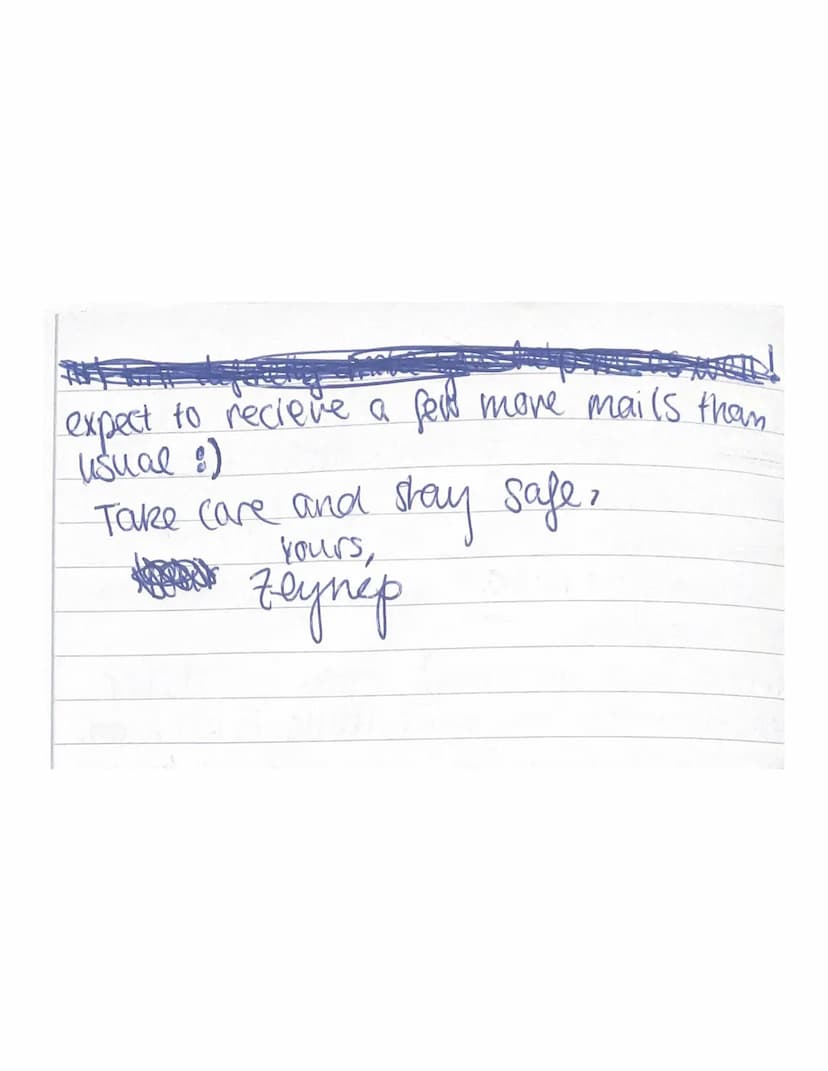 expect to recieve a few more mails than
usual :)
Take care and stay safe,
yours,
Zeynep